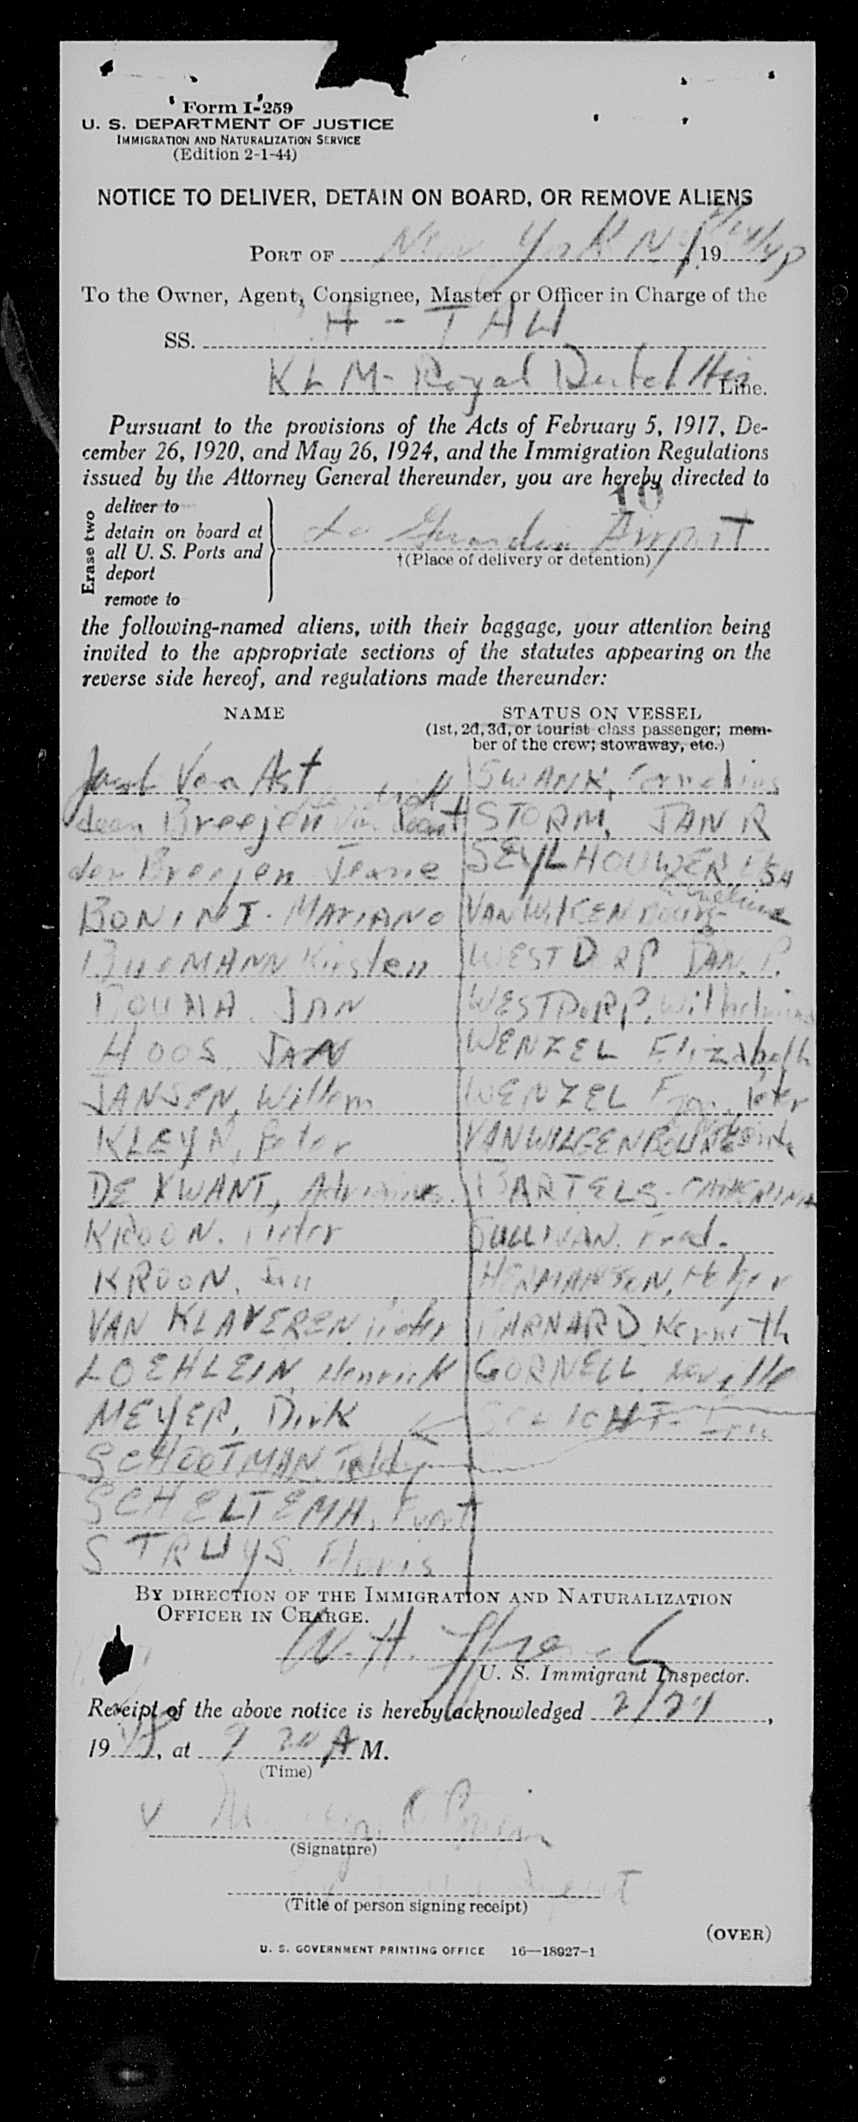 Form I-259
U. S. DEPARTMENT OF JUSTICE
IMMIGRATION AND NATURALIZATION SERVICE
(Edition 2-1-44)
NOTICE TO DELIVER, DETAIN ON BOARD, OR REMOVE ALIENS
PORT OF New York N 19
To the Owner, Agent, Consignee, Master or Officer in Charge of the
SS. H - TAW
KLM - Royal Line.
Pursuant to the provisions of the Acts of February 5, 1917, De-
cember 26, 1920, and May 26, 1924, and the Immigration Regulations
issued by the Attorney General thereunder, you are hereby directed to
10
Erase two
deliver to
detain on board at
all U. S. Ports and
deport
remove to
La Guardia Airport
†(Place of delivery or detention)
the following-named aliens, with their baggage, your attention being
invited to the appropriate sections of the statutes appearing on the
reverse side hereof, and regulations made thereunder:
NAME STATUS ON VESSEL
(1st, 2d, 3d, or tourist class passenger; mem-
ber of the crew; stowaway, etc.)
Jacob Van Ast SWANK, Cornelius
deen Breejen STORM, JAN R
den Breejen SEYLHOUWER
BONINI - MARIANO VANWILGENBOURG
MANN Kirsten WESTDORP JAN. P.
BOUMA, JAN WESTDORP, Wilhelmina
HOOS, JAN WENZEL Elizabeth
JANSEN, Willem WENZEL Peter
KLEYN, Peter VANWILGENBOURG
DE KWANT, Adrianus BARTELS - CATHERINA
KROON, Pieter SULLIVAN, Fred.
KROON, Jan HERMANSEN, Holger
VAN KLAVEREN, Pieter BARNARD Kenneth
LOEHLEIN, Henrick GORNELL, Neville
MEYER, Dirk
SCHOOTMAN,
SCHELTEMA, Evert
STRUYS, Floris
BY DIRECTION OF THE IMMIGRATION AND NATURALIZATION
OFFICER IN CHARGE.
W. H.
U. S. Immigrant Inspector.
Receipt of the above notice is hereby acknowledged 2/27,
1948, at 9 20 A M.
(Time)
O'Brien
(Signature)
Agent
(Title of person signing receipt)
(OVER)
U. S. GOVERNMENT PRINTING OFFICE 16—18927-1